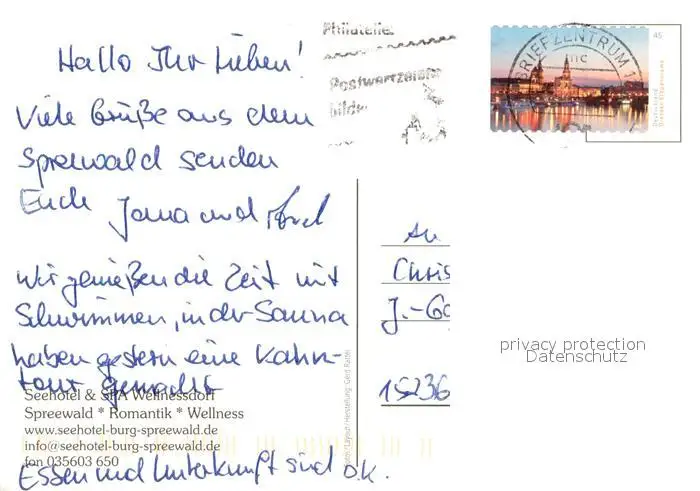 Hallo Ihr Lieben!
Viele Grüße aus dem
Spreewald senden
Euch Jana und
Wir genießen die Zeit mit
Schwimmen, in der Sauna
haben gestern eine Kahn-
tour gemacht
Seehotel & SPA Wellnessdorf
Spreewald * Romantik * Wellness
www.seehotel-burg-spreewald.de
info@seehotel-burg-spreewald.de
fon 035603 650
Essen und Unterkunft sind o.k.
Philatelie
Postwertzeichen
BRIEFZENTRUM 1
45
Deutschland
An
Chris
J.-Go
15236
privacy protection
Datenschutz